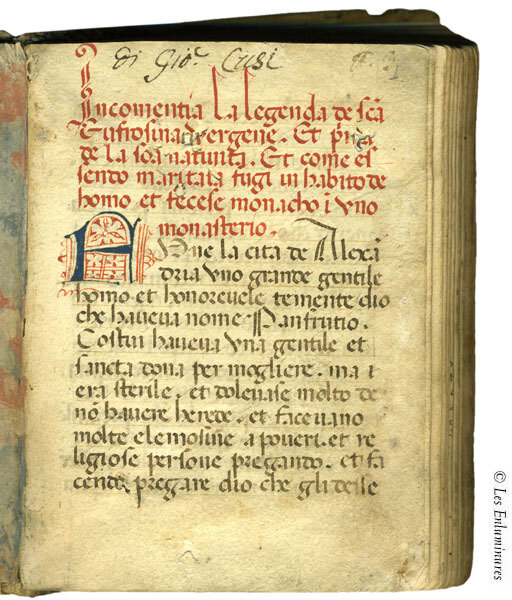 Di Gio. Cusi
Incomentia la legenda de scā
Eufrosina vergene. Et p̄ma
de la scā natuita. Et come es
sendo maritata fugi in habito de
homo et fecese monacho ī vno
monasterio.
Fve la cita de Alexā
dria vno grande gentile
homo et honorevele temente dio
che haveva nome Panfnutio.
Costui haveva vna gentile et
sancta dona per mogliere. ma i
era sterile. et dolevase molto de
nō havere herede. et facevano
molte elemosine a poveri. et re
ligiose persone pregando. et fa
cendo pregare dio che gli desse
© Les Enluminures